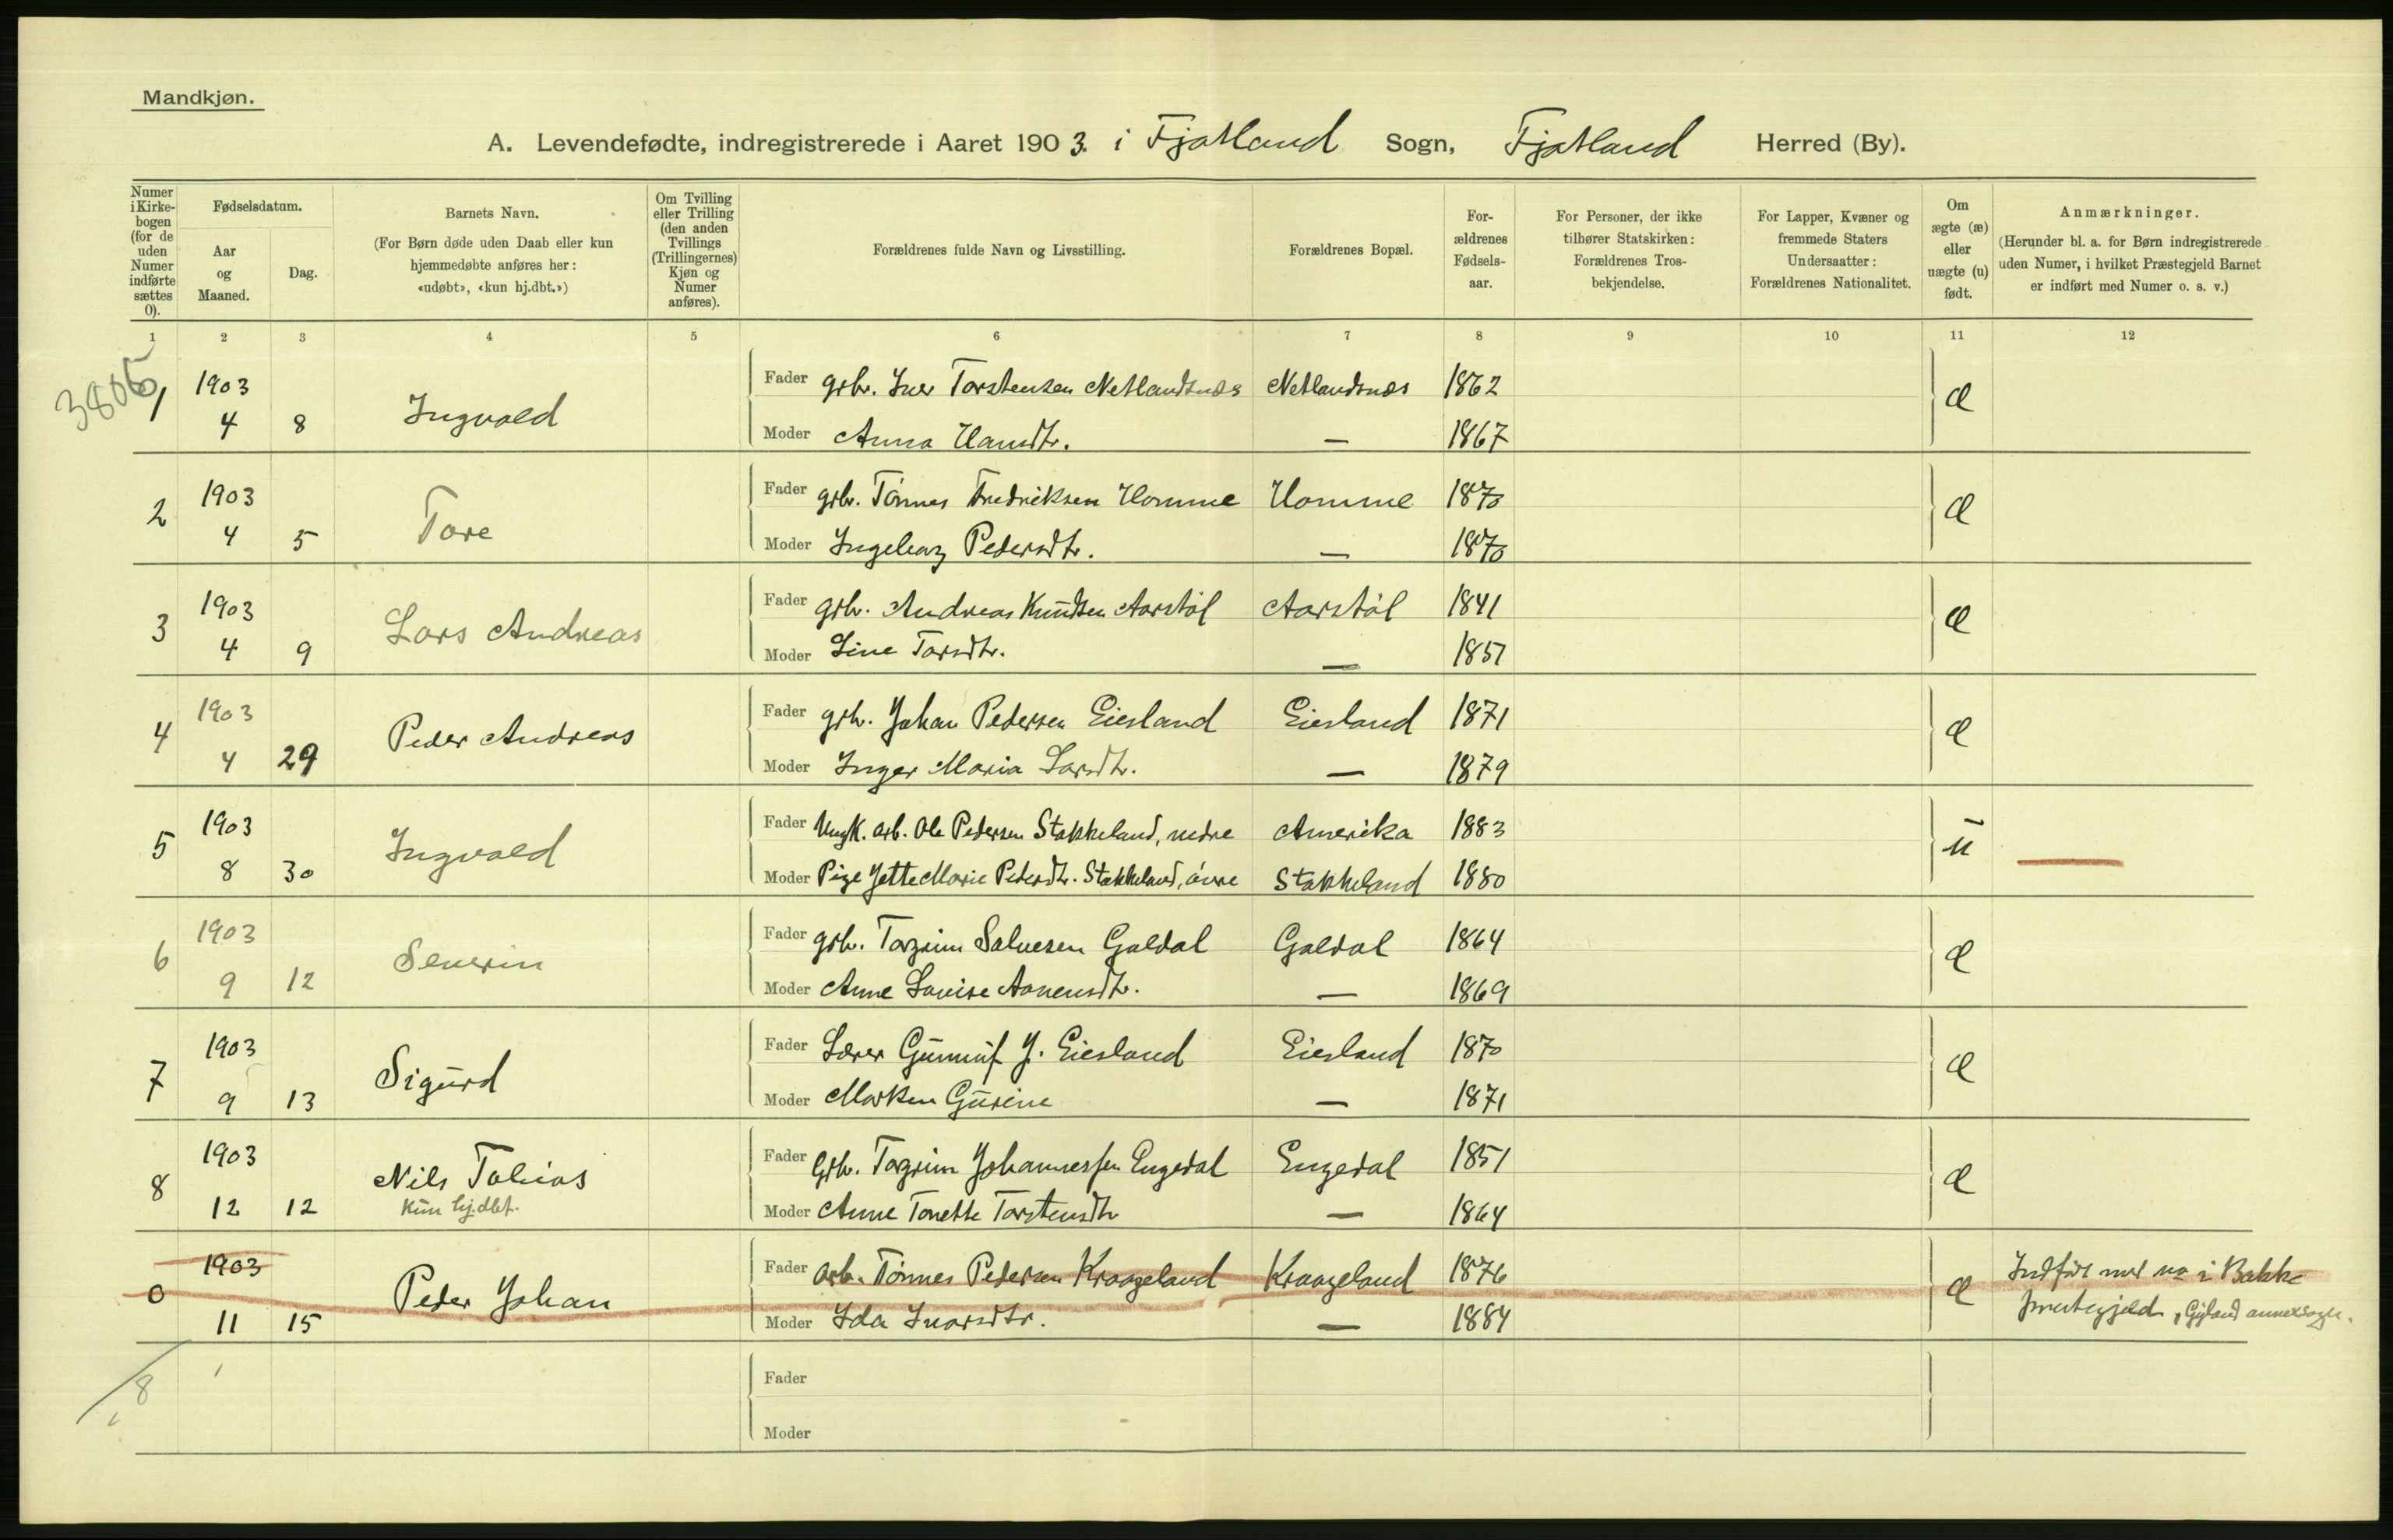 Mandkjøn.
A. Levendefødte, indregistrerede i Aaret 1903. i Fjotland Sogn, Fjotland Herred (By).
Numer i Kirkebogen (for de uden Numer indførte sættes 0).
Fødselsdatum.
Aar og Maaned.
Dag.
Barnets Navn.
(For Børn døde uden Daab eller kun hjemmedøbte anføres her: «udøbt», «kun hj.dbt.»)
Om Tvilling eller Trilling (den anden Tvillings (Trillingernes) Kjøn og Numer anføres).
Forældrenes fulde Navn og Livsstilling.
Forældrenes Bopæl.
For-ældrenes Fødsels-aar.
For Personer, der ikke tilhører Statskirken: Forældrenes Tros-bekjendelse.
For Lapper, Kvæner og fremmede Staters Undersaatter: Forældrenes Nationalitet.
Om ægte (æ) eller uægte (u) født.
Anmærkninger.
(Herunder bl. a. for Børn indregistrerede uden Numer, i hvilket Præstegjeld Barnet er indført med Numer o. s. v.)
1 2 3 4 5 6 7 8 9 10 11 12
3806
1 1903 Fader grbr. Iver Torstensen Netlandsnes Netlandsnes 1862 æ
4 8 Ingvald Moder Anna Hansdtr. — 1867
2 1903 Fader grbr. Tønnes Fredriksen Homme Homme 1870 æ
4 5 Tore Moder Ingeborg Pedersdtr. — 1870
3 1903 Fader grbr. Andreas Knudsen Aarstøl Aarstøl 1841 æ
4 9 Lars Andreas Moder Line Torsdtr. — 1857
4 1903 Fader grbr. Johan Pedersen Eiesland Eiesland 1871 æ
4 29 Peder Andreas Moder Inger Maria Larsdtr. — 1879
5 1903 Fader Ungk. arb. Ole Pedersen Stakkeland, nedre Amerika 1883 u
8 30 Ingvald Moder Pige Jette Marie Pedersdtr. Stakkeland, øvre Stakkeland 1880
6 1903 Fader grbr. Torgrim Salvesen Galdal Galdal 1864 æ
9 12 Severin Moder Anne Lovise Aanensdtr. — 1869
7 1903 Fader Lærer Gunnuf J. Eiesland Eiesland 1870 æ
9 13 Sigurd Moder Marken Gurine — 1871
8 1903 Nils Tobias Fader Grbr. Torgrim Johannessen Engedal Engedal 1851 æ
12 12 kun hj.dbt. Moder Anne Tonette Torstensdtr — 1864
0 1903 Fader Arb. Tønnes Pedersen Kraageland Kraageland 1876 æ Indført med no i Bakke
11 15 Peder Johan Moder Ida Ivarsdtr. — 1884 prestegjeld, Gyland annexsogn.
8 Fader
Moder